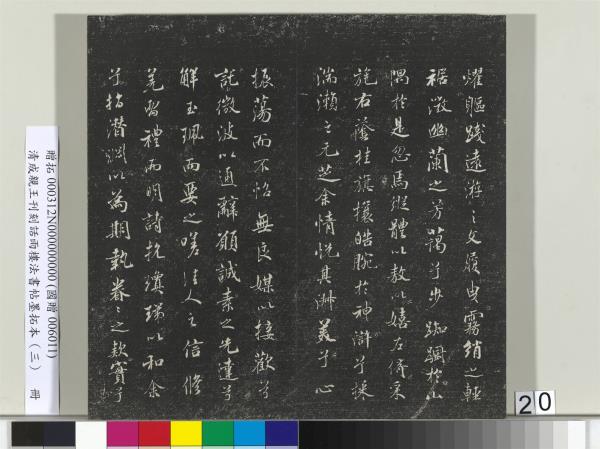 燿軀踐遠游之文履曳霧綃之輕
裾微幽蘭之芳藹兮步踟躕於山
隅於是忽焉縱體以敖以嬉左倚采
旄右蔭桂旗攘皓腕於神滸兮採
湍瀨之元芝余情悅其淑美兮心
振蕩而不怡無良媒以接歡兮
託微波以通辭願誠素之先達兮
解玉珮而要之嗟佳人之信脩
羌習禮而明詩抗瓊珶以和余
兮指潛淵以為期執眷々之款實兮
贈拓 000312N000000000 (國贈 006011)
清成親王刊刻話雨樓法書帖墨拓本(三) 冊
20